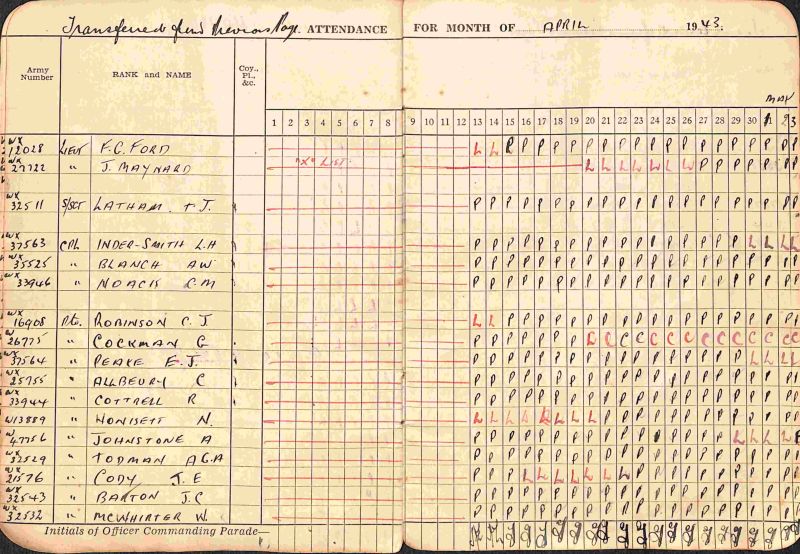 Transferred from Previous Page. ATTENDANCE FOR MONTH OF APRIL 1943.
Army Number RANK and NAME Coy., Pl., &c.
MAY
1 2 3 4 5 6 7 8 9 10 11 12 13 14 15 16 17 18 19 20 21 22 23 24 25 26 27 28 29 30 1 2 3
WX 12028 LIEUT F.C. FORD L L P P P P P P P P P P P P P P P P P P P
WX 27722 " J. MAYNARD "X" LIST L L L L L L L P P P P P P P
WX 32511 S/SGT LATHAM. T.J. P P P P P P P P P P P P P P P P P P P P P
WX 37563 CPL INDER-SMITH L.H P P P P P P P P P P P P P P P P P L L L L
WX 35525 " BLANCH A W P P P P P P P P P P P P P P P P P P P P P
WX 33946 " NOACK C M P P P P P P P P P P P P P P P P P P P P P
WX 16908 Pte. ROBINSON C. J L L P P P P P P P P P P P P P P P P P P P
W 26775 " COCKMAN G P P P P P P P L C C C C C C C C C C C C C
WX 37564 " PEAKE E.J P P P P P P P P P P P P P P P P P L L L L
WX 25755 " ALLBEURY C P P P P P P P P P P P P P P P P P P P P P
WX 33944 " COTTRELL R P P P P P P P P P P P P P P P P P P P P P
W13889 " HONISETT N. L L L L L L L L P P P P P P P P P P P P P
W 47756 " JOHNSTONE A P P P P P P P P P P P P P P P P L L L L P
WX 32529 " TODMAN A G.A P P P P P P P P P P P P P P P P P P P P P
WX 21576 " CODY J. E P P P L L L L L L L P P P P P P P P P P P
WX 32543 " BARTON J.C P P P P P P P P P P P P P P P P P P P P P
WX 32532 " MCWHIRTER W. P P P P P P P P P P P P P P P P P P P P P
Initials of Officer Commanding Parade—